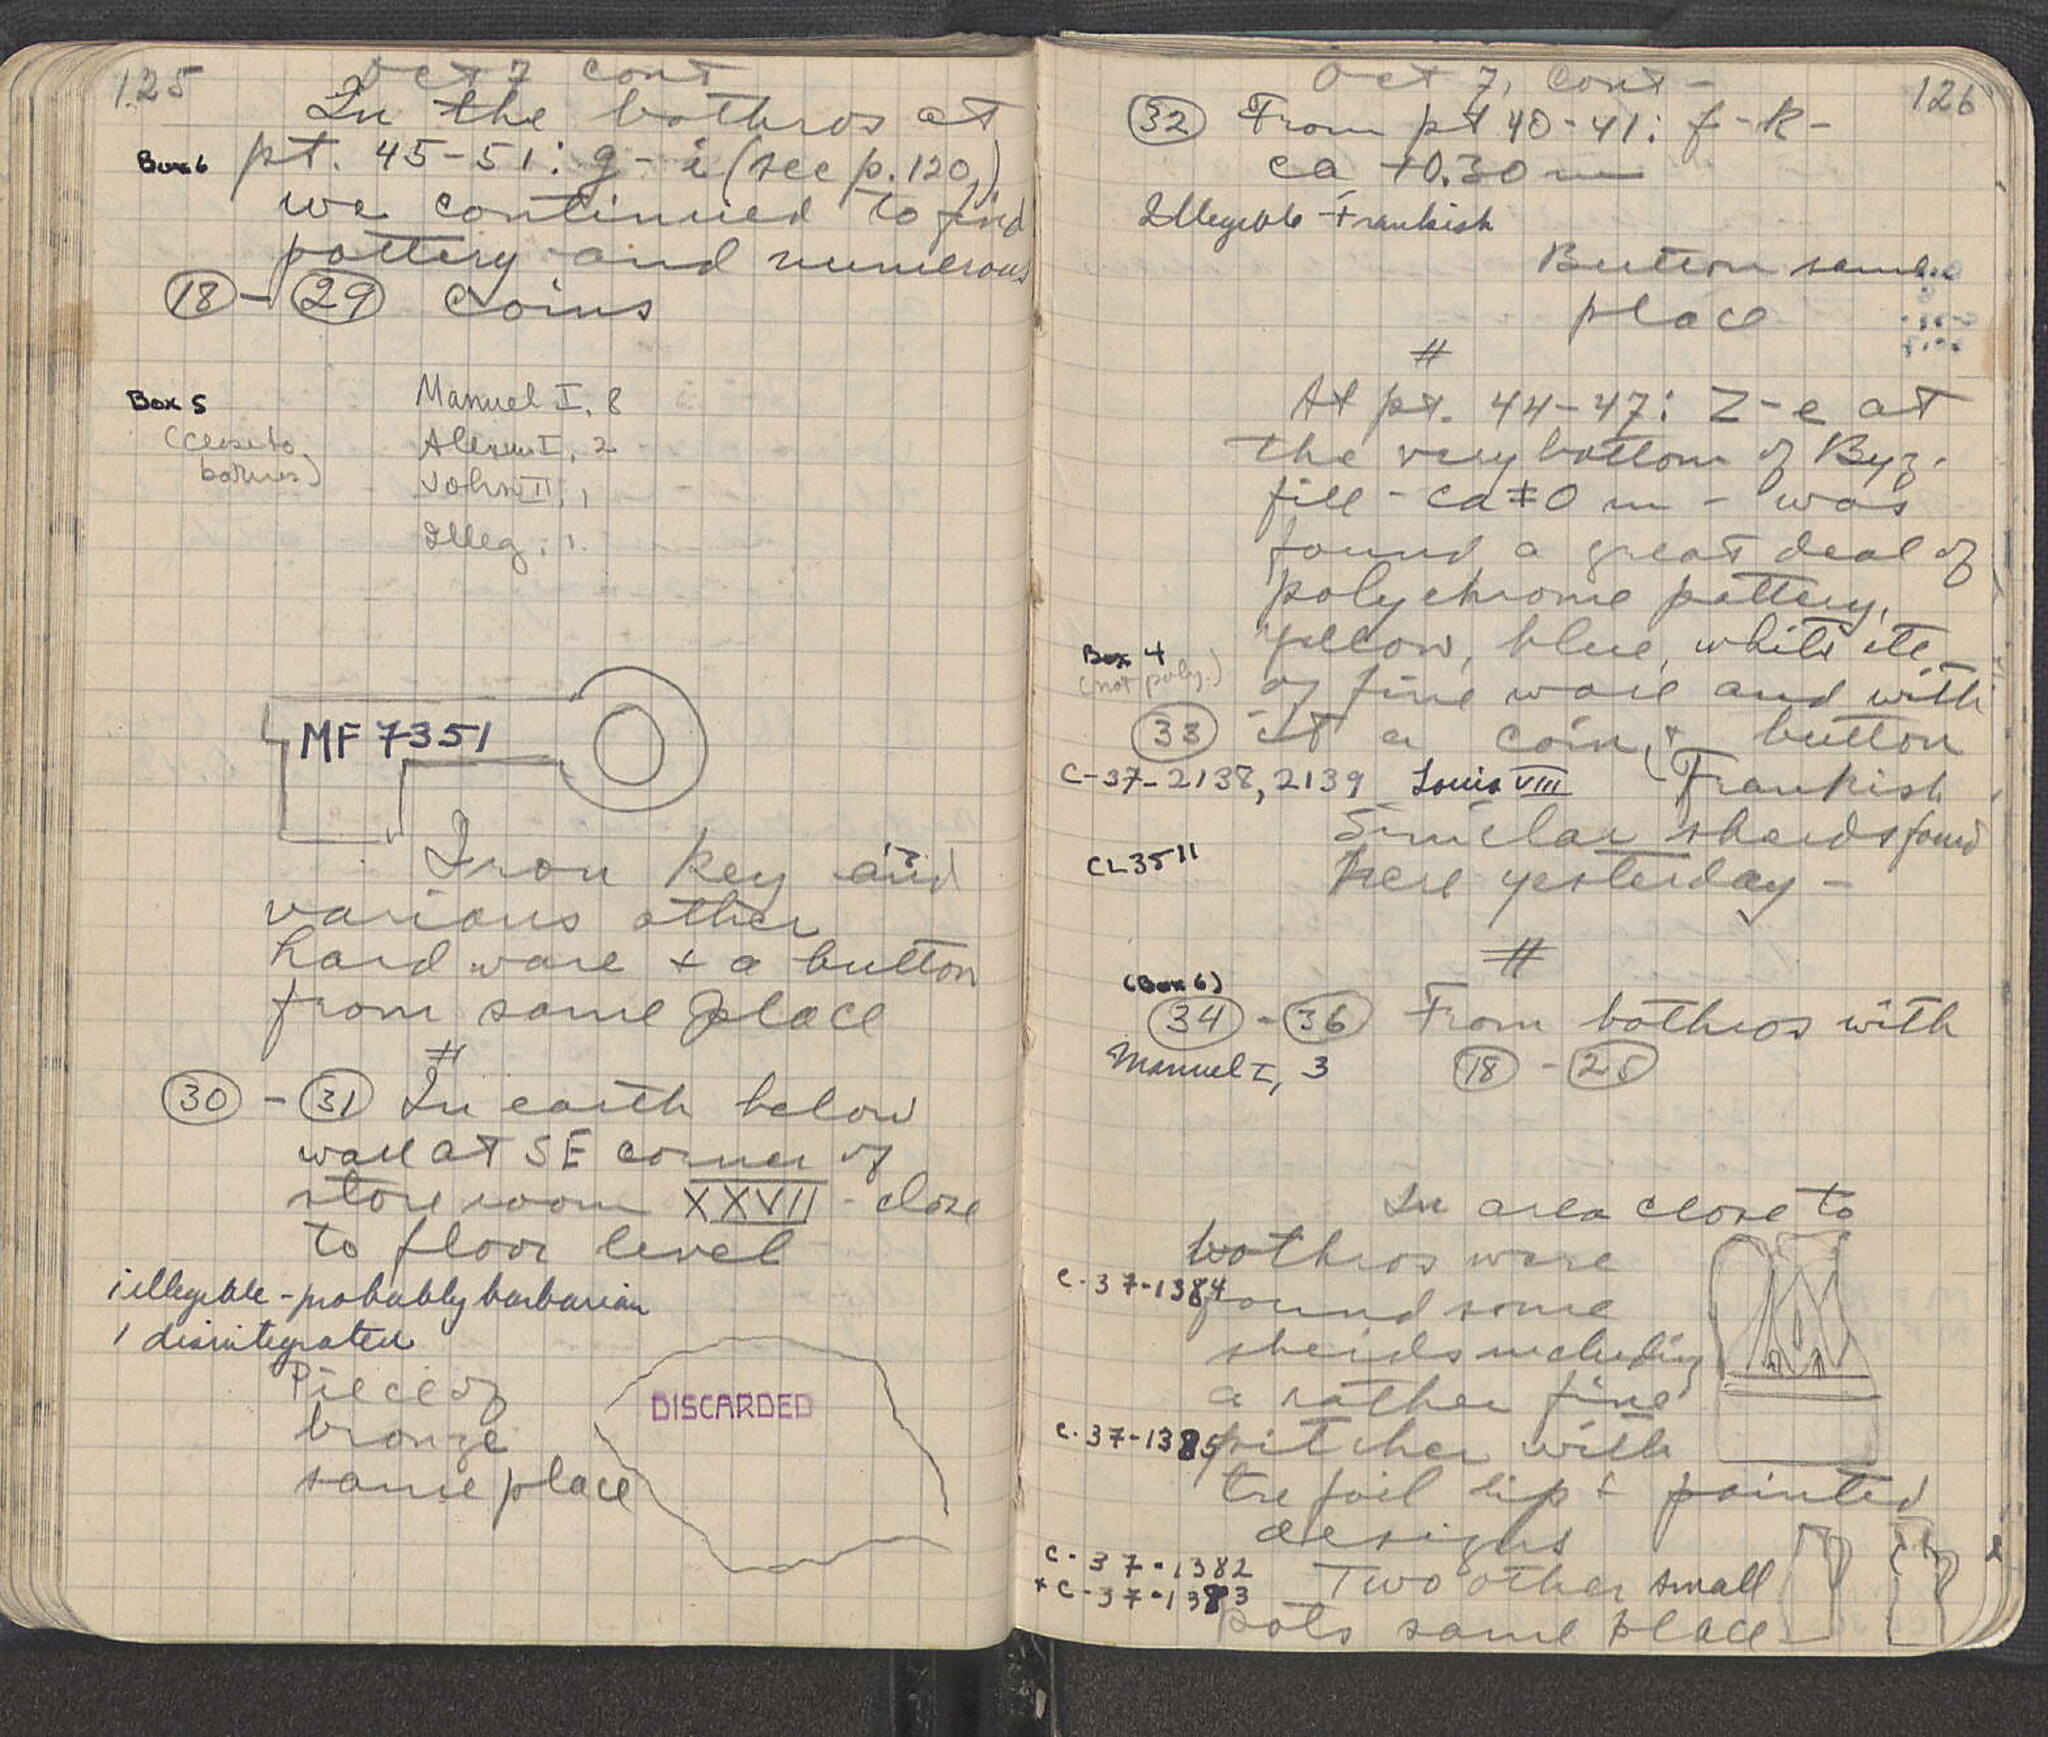 125
Oct 7 cont
In the bothros at
Box 6 pt. 45-51: g-i (see p. 120,)
we continued to find
pottery and numerous
18 - 29 coins
Box 5
(close to
bothros)
Manuel I, 8
Alexius I, 2
John II, 1
Illeg, 1.
MF 7351
Iron key and
various other
hardware + a button
from same place
#
30 - 31 In earth below
wall at SE corner of
store room XXVII - close
to floor level
1 illegible - probably barbarian
1 disintegrated
Piece of
bronze
same place
DISCARDED
126
Oct 7, cont -
32 From pt 40-41: f-k-
ca +0.30 m
Illegible - Frankish
Button same
place
#
At pt. 44-47: Z-e at
the very bottom of Byz.
fill - ca ±0 m - was
found a great deal of
polychrome pottery,
yellow, blue, white etc,
Box 4
(not poly.)
of fine ware and with
33 it a coin, + button
C-37-2138, 2139 Louis VIII (Frankish
Similar sherds found
CL 3511
here yesterday -
#
(Box 6)
34 - 36 From bothros with
Manuel I, 3 18 - 25
In area close to
bothros were
C-37-1384
found some
sherds including
a rather fine
C-37-1385
pitcher with
trefoil lip + painted
designs
C-37-1382
+ C-37-1383
Two other small
pots same place -